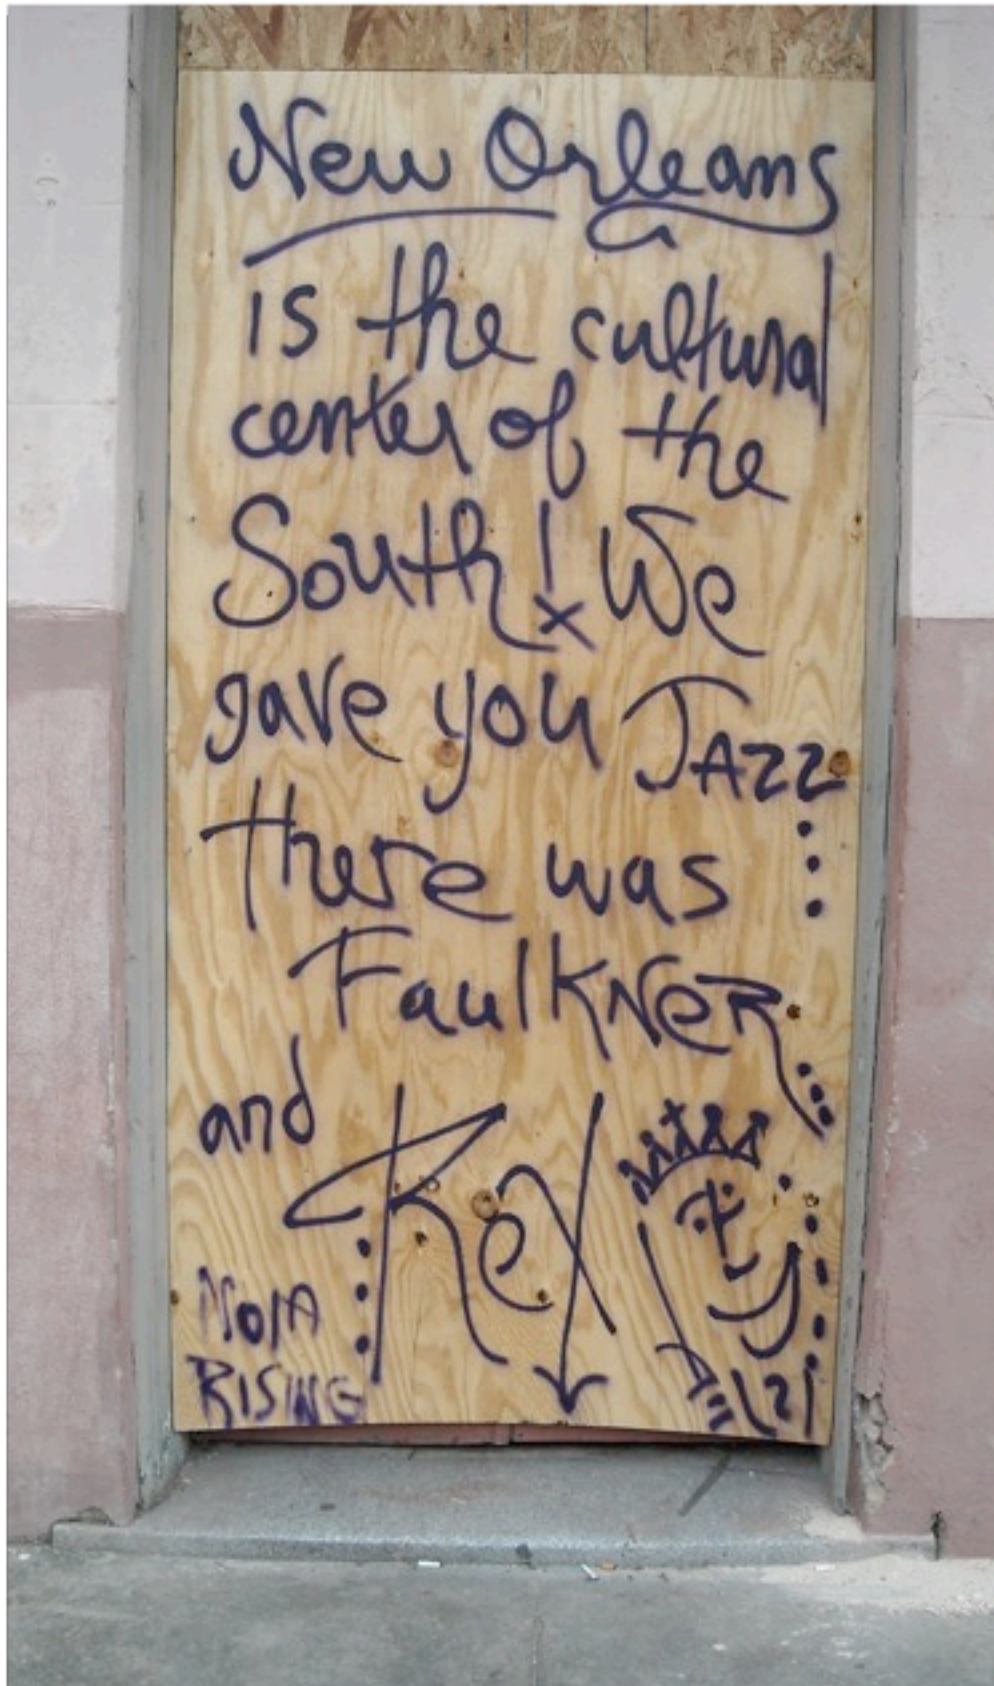 New Orleans
is the cultural
center of the
South! We
gave you JAZZ...
there was
FaulkNeR...
and Rex
NOLA
RISING